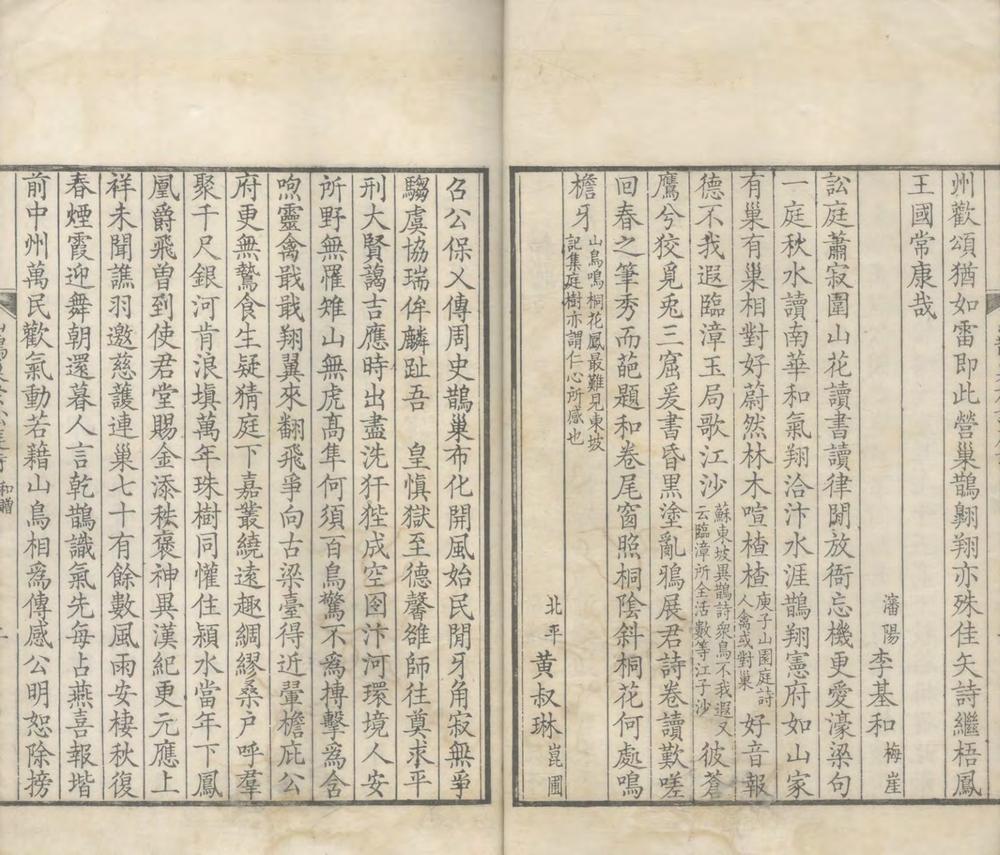 州歡頌猶如雷即此營巢鵲翺翔亦殊佳矢詩繼梧鳳
王國常康哉
瀋陽李基和梅崖
訟庭蕭寂圍山花讀書讀律閒放衙忘機更愛濠梁句
一庭秋水讀南華和氣翔洽汴水涯鵲翔憲府如山家
有巢有巢相對好蔚然林木喧楂楂庾子山園庭詩人禽或對巢好音報
德不我遐臨漳玉局歌江沙蘇東坡異鵲詩衆鳥不我遐又云臨漳所全活數等江子沙彼蒼
鷹兮狡覓兎三窟爰書昏黑塗亂鴉展君詩卷讀歎嗟
回春之筆秀而葩題和卷尾窗照桐陰斜桐花何處鳴
檐牙山鳥鳴桐花鳳最難見東坡記集庭樹亦謂仁心所感也
北平黃叔琳崑圃
召公保乂傳周史鵲巢布化開風始民閒牙角寂無爭
騶虞協瑞侔麟趾吾 皇慎獄至德馨雒師往奠求平
刑大賢藹吉應時出盡洗犴狴成空囹汴河環境人安
所野無羅雉山無虎高隼何須百鳥驚不為搏擊為含
煦靈禽戢戢翔翼來翻飛爭向古梁臺得近翬檐庇公
府更無鷙食生疑猜庭下嘉叢繞遠趣綢繆桑戶呼羣
聚千尺銀河肯浪塡萬年珠樹同懽住潁水當年下鳳
凰爵飛曾到使君堂賜金添秩褒神異漢紀更元應上
祥未聞譙羽邀慈護連巢七十有餘數風雨安棲秋復
春煙霞迎舞朝還暮人言乾鵲識氣先每占燕喜報堦
前中州萬民歡氣動若藉山鳥相爲傳感公明恕除搒
和贈